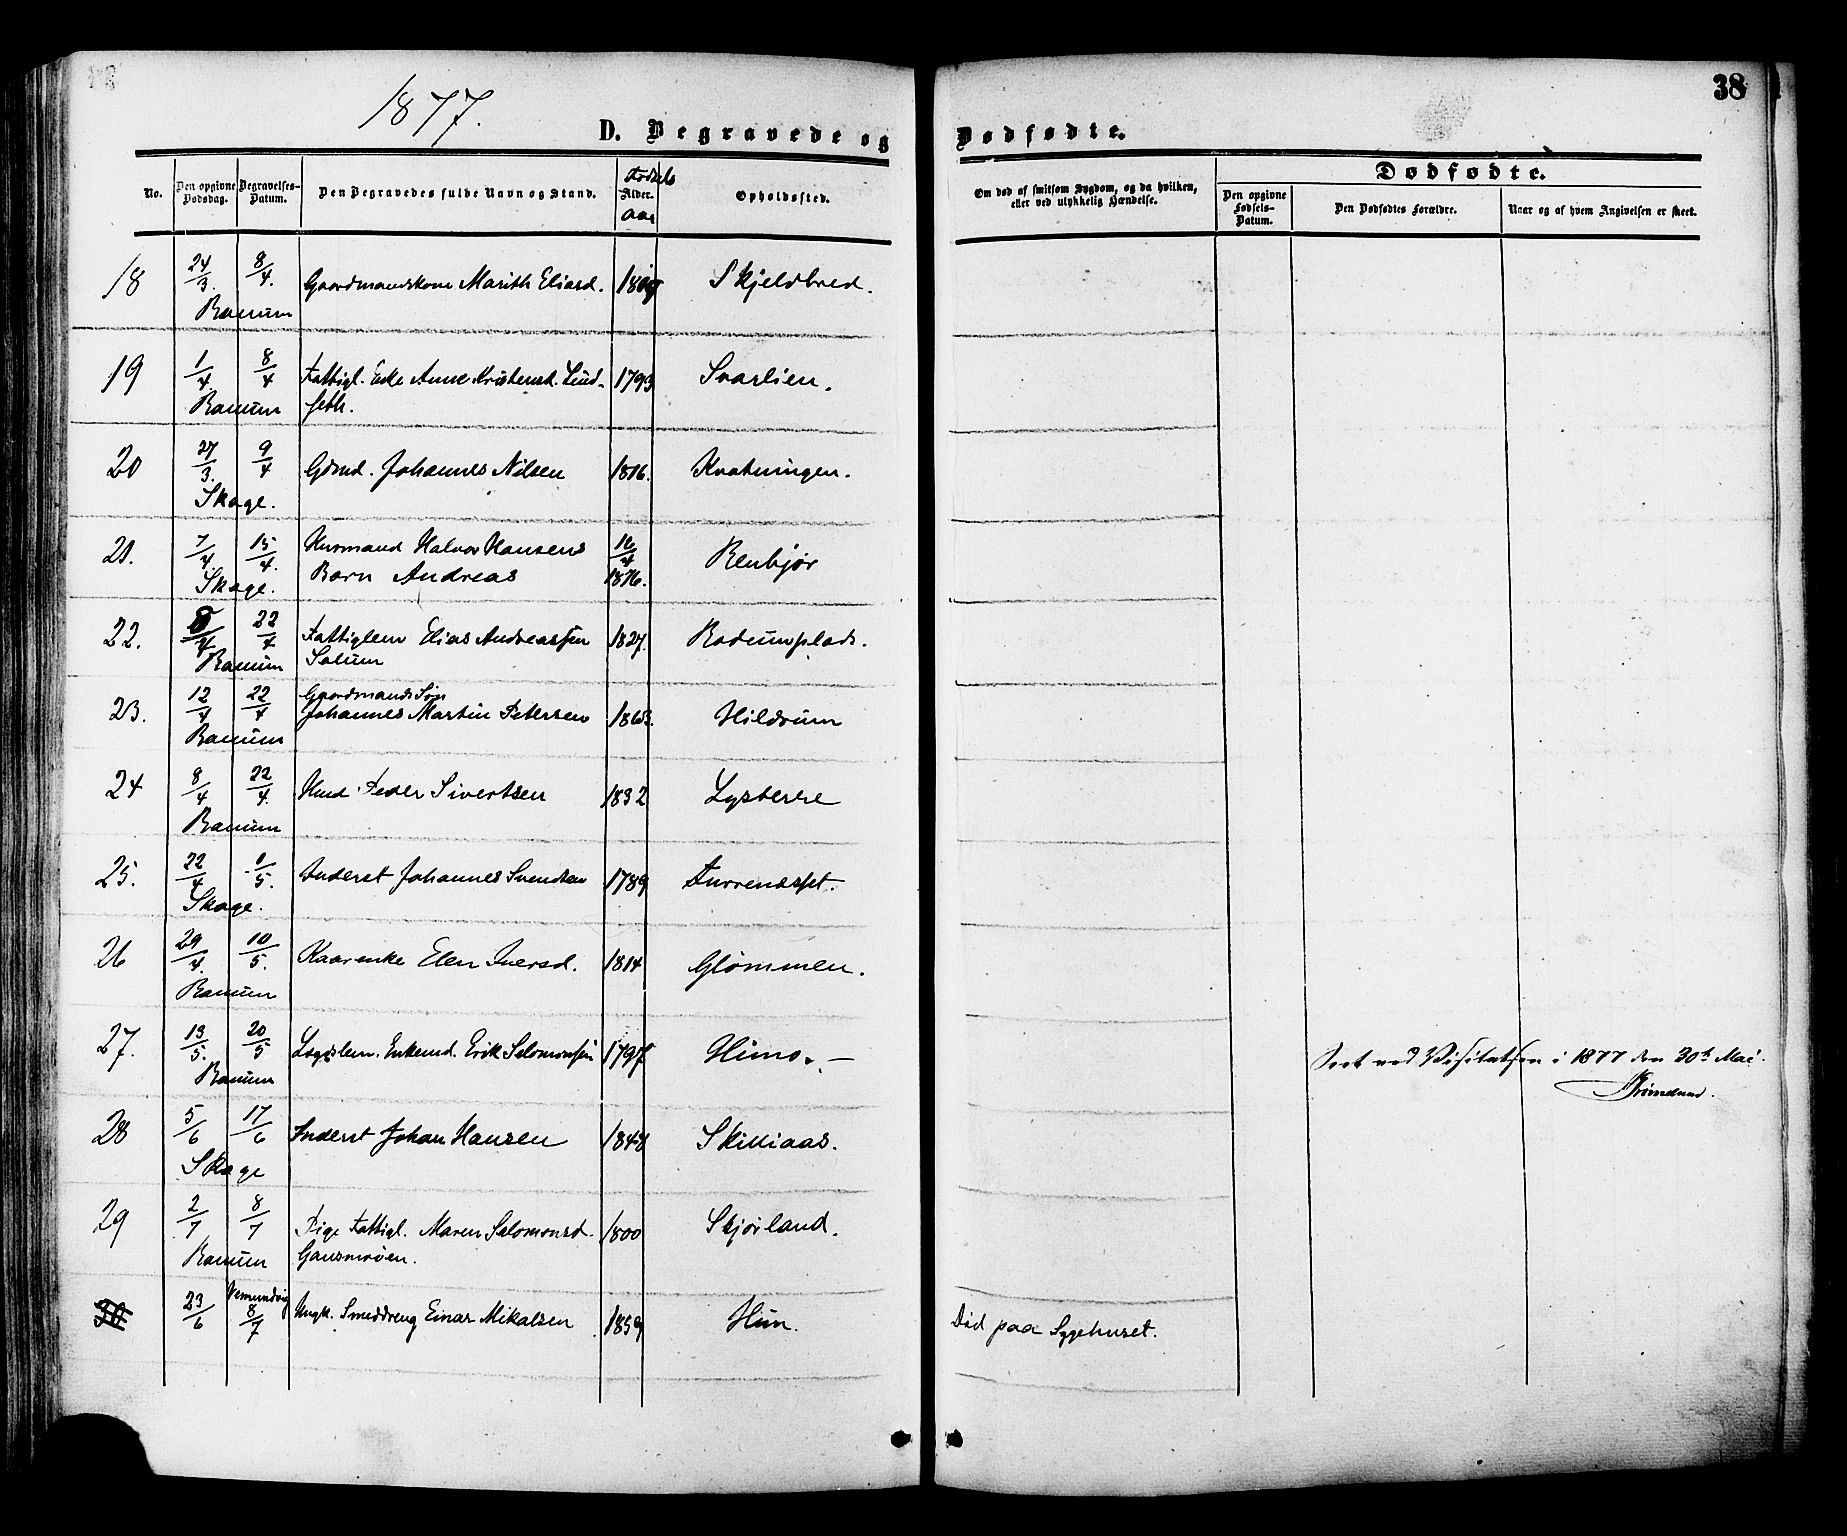 1877.
38
D. Begravede og Dødfødte.
No.
Den opgivne Dødsdag.
Begravelses-Datum.
Den Begravedes fulde Navn og Stand.
Fødsels
Alder.
aar
Opholdssted.
Om død af smitsom Sygdom, og da hvilken, eller ved ulykkelig Hændelse.
Dødfødte.
Den opgivne Fødsels-Datum.
Den Dødfødtes Forældre.
Naar og af hvem Angivelsen er skeet.
18 24/3. 8/4. Gaardmandskone Marith Eliasd. Skjeldbred.
Ranum
19 1/4. 8/4 Fattigl. Enke Anne Kristensd. Lind- 1793 Svarlien.
Ranum seth.
20 27/3. 9/4 Gdmd. Johannes Nilsen 1816. Kvatningen.
Skage.
21. 7/4. 15/4. Husmand Halvor Hansens 16/4 Renbjør
Skage. Barn Andreas 1876.
22. 22/4 Fattiglem Elias Andreassen 1827. Rodumplads.
Ranum Solum
23. 12/4 22/4 Gaardmands Søn
Johannes Martin Petersen Hildrum
Ranum
24 8/4 22/4. Hmd. Peder Sivertsen 1832
Ranum
25. 22/4 /5. Inderst Johannes Svendsen 1789
Skage.
26 29/4. 10/5. Kaarenke Elen Iversd. 1814 Glømmen.
Ranum
27. 13/5. 20/5 Lægdslem. Enkemd. Erik Salomonsen 1797 Himo. —
Ranum
Seet ved Visitatsen i 1877 den 30te Mai.
28 5/6 17/6 Inderst Johan Hansen 1848 Skilliaas.
Skage
29 2/7 8/7 Pige Fattigl. Maren Salomonsd. 1800 Skjørland.
Ranum Gansmoen.
30 23/6 Vemundvig 8/7 Ungk. Smeddreng Einar Mikalsen 1859 Hun. Død paa Sygehuset.